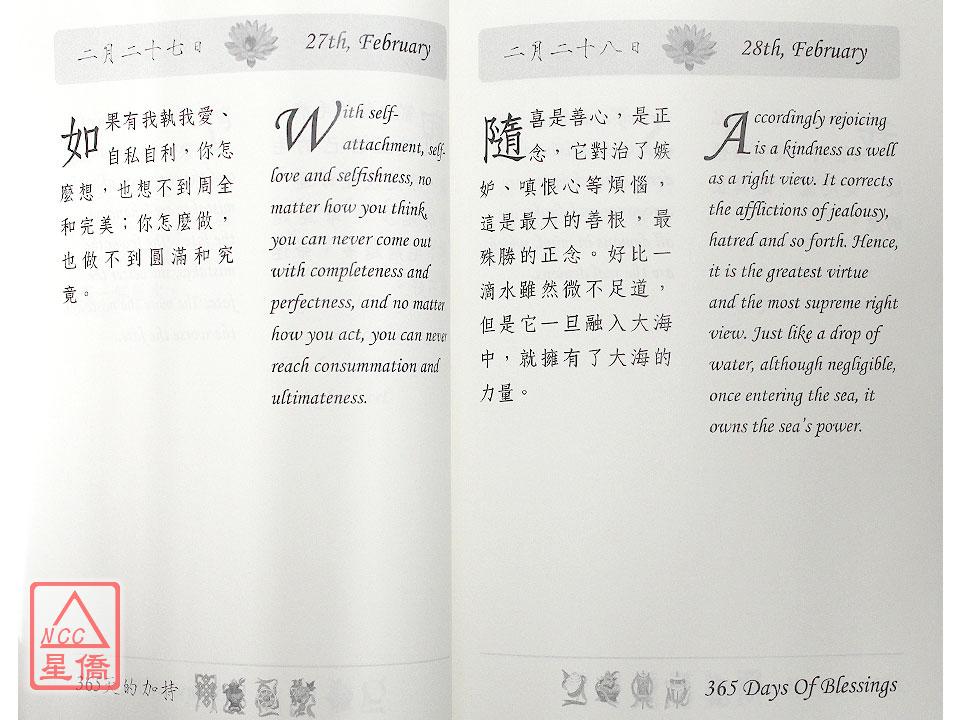 二月二十七日
27th, February
如果有我執我愛、
自私自利，你怎
麼想，也想不到周全
和完美；你怎麼做，
也做不到圓滿和究
竟。
With self-
attachment, self-
love and selfishness, no
matter how you think,
you can never come out
with completeness and
perfectness, and no matter
how you act, you can never
reach consummation and
ultimateness.
365天的加持
NCC
星僑
二月二十八日
28th, February
隨喜是善心，是正
念，它對治了嫉
妒、嗔恨心等煩惱，
這是最大的善根，最
殊勝的正念。好比一
滴水雖然微不足道，
但是它一旦融入大海
中，就擁有了大海的
力量。
Accordingly rejoicing
is a kindness as well
as a right view. It corrects
the afflictions of jealousy,
hatred and so forth. Hence,
it is the greatest virtue
and the most supreme right
view. Just like a drop of
water, although negligible,
once entering the sea, it
owns the sea's power.
365 Days Of Blessings